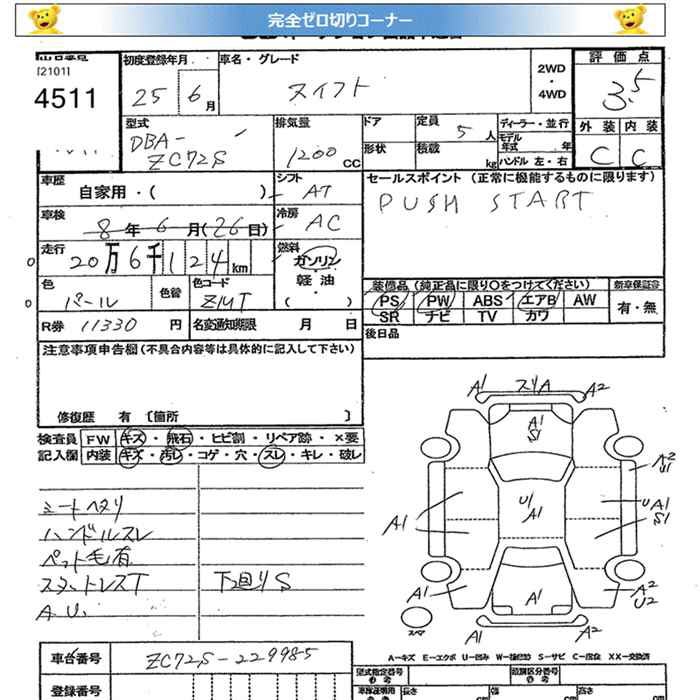 完全ゼロ切りコーナー
[2101]
4511
初度登録年月
25 6月
車名・グレード
スイフト
2WD
・
4WD
評価点
3.5
外装 内装
C C
型式
DBA-
ZC72S
排気量
1200 cc
ドア
定員
5 人
ディーラー・並行
モデル
年式 年
形状
積載
kg
ハンドル 左・右
車歴
自家用・( )
シフト
AT
車検
8年6月(26日)
冷房
AC
走行
20万6千124km
燃料
ガソリン
・
軽油
( )
色
パール
色替
色コード
ZMT
R券 11330 円
名変通知期限 月 日
セールスポイント (正常に機能するものに限ります)
PUSH START
装備品(純正品に限り○をつけてください)
新車保証書
PS PW ABS エアB AW
SR ナビ TV カワ
有・無
後日品
注意事項申告欄(不具合内容等は具体的に記入して下さい)
修復歴 有 〔箇所 〕
検査員
記入欄
FW キズ・飛石・ヒビ割・リペア跡・×要
内装 キズ・汚レ・コゲ・穴・スレ・キレ・破レ
シートヘタリ
ハンドルスレ
ペット毛有
スタットレスT
A.U.
下回りS
A1 スリA A2
A1
S1
A2
U1
U/
A1
UA1
S1
A1
A1
A1
A2
U2
A1
A2
スペア
A-キズ E-エクボ U-凹み W-補修跡 S-サビ C-腐食 XX-交換済
車台番号 ZC72S-229985
登録番号
型式指定番号
類別区分番号
長さ
cm
幅
cm
高さ
cm